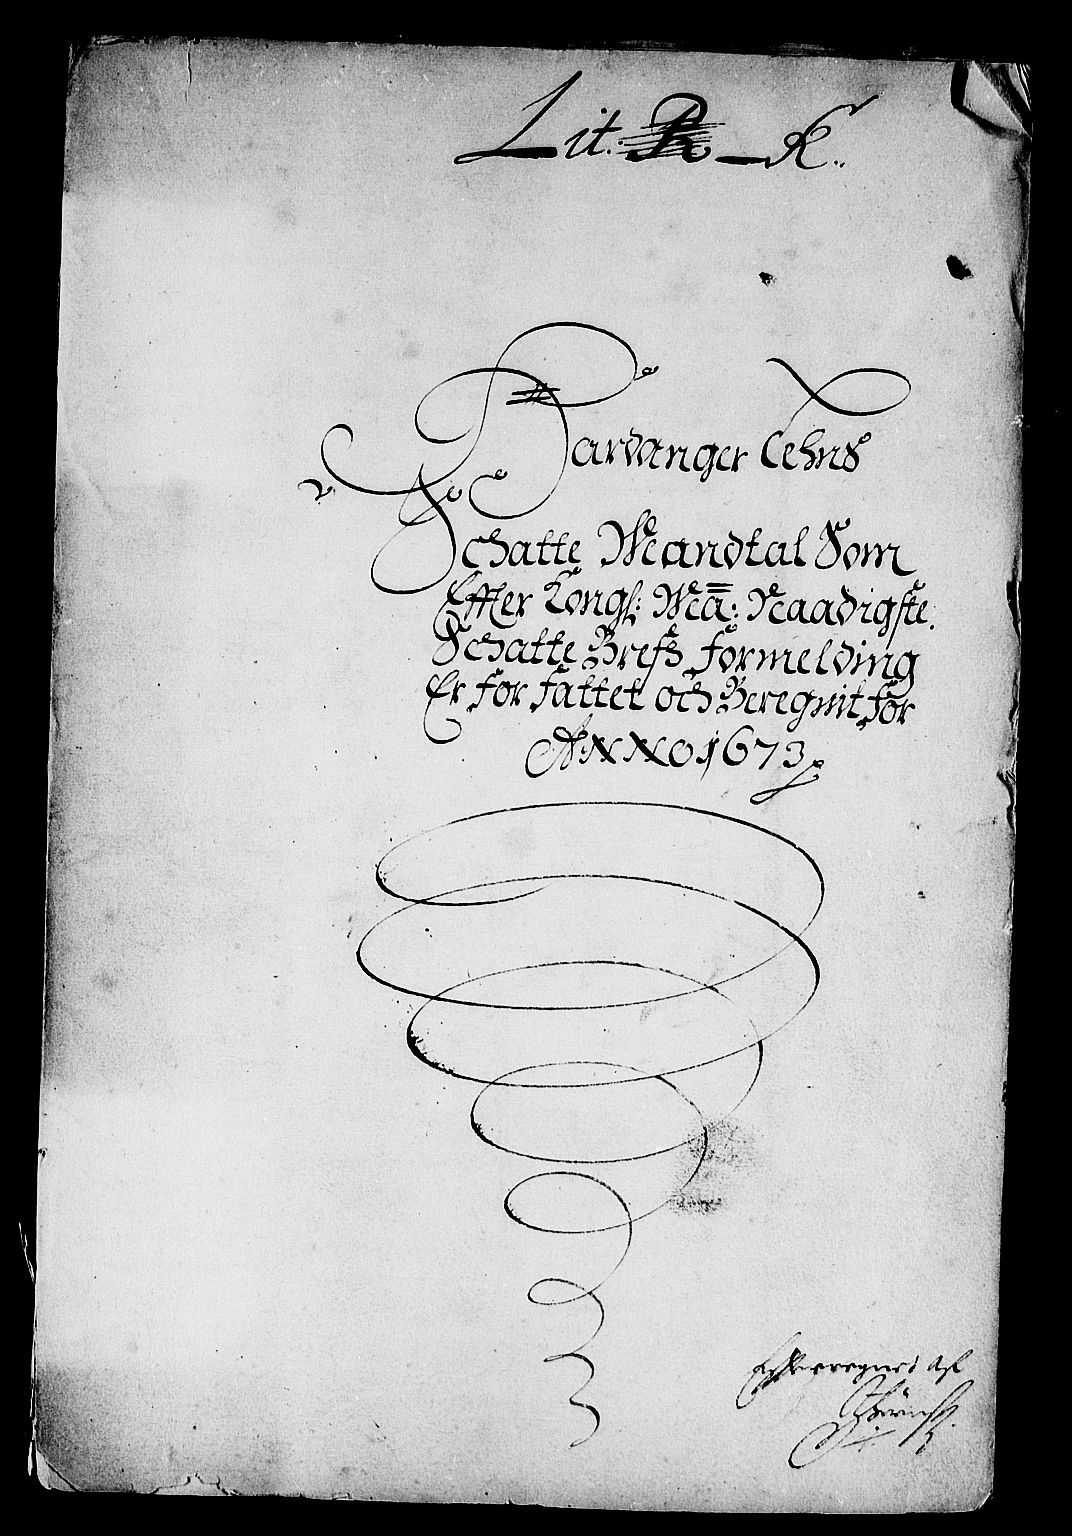 Lit. R K..
Hardanger Lehns
Schatte Mandtal Som
Effter Kongl: Ma: Naadigste.
Schatte Brefs formelding
Er for fattet och Beregnit for
ANNO 1673
Effterregnet af